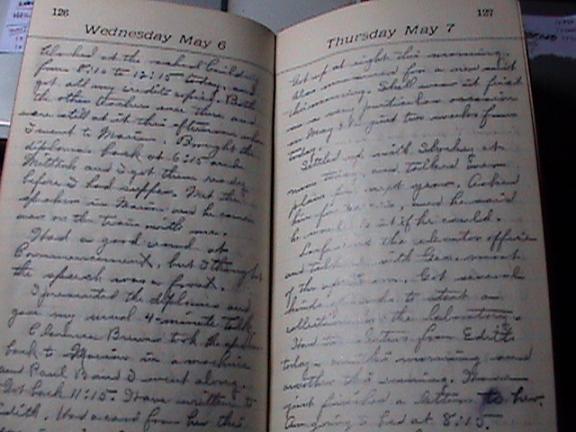 126
Wednesday May 6
Worked at the school building
from 8:10 to 12:15 today, and
got all my credits copied. Both
the other teachers were there and
were still at it this afternoon when
I went to Marion. Brought the
diplomas back at 6:15 and
and I got them ready
before I had supper. Met the
speaker in Marion and he came
over on the train with me.
Had a good crowd at
Commencement, but I thought
the speech was a frost.
I presented the diplomas and
gave my usual 4-minute talk.
Clarence Brown took the speaker
back to Marion in a machine
and Paul and I went along.
Got back 11:15. Have written to
Edith. Had a card from her this
127
Thursday May 7
Got up at eight this morning.
measured for a new suit
this morning. Shall wear it first
on a very particular occasion
on May just two weeks from
today.
Settled up with at
noon today, and talked over
plans for next year. Asked
him for and he said
he would do it if he could.
the elevator office
and talked with Geo. most
of the afternoon. Got several
kinds of to start a
collection in the laboratory.
Had two letters from Edith
today, one this morning and
another this evening. Have
just finished a letter to her.
Am going to bed at 8:15.